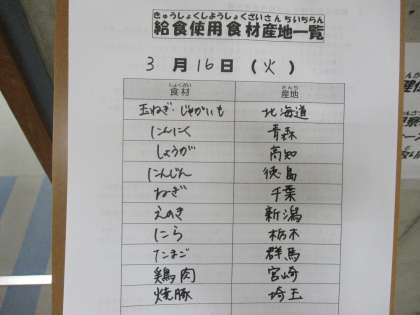 きゅうしょくしようしょくざいさんちいちらん
給食使用食材産地一覧
3月16日(火)
しょくざい さんち
食材 産地
玉ねぎ・じゃがいも 北海道
にんにく 青森
しょうが 高知
にんじん 徳島
ねぎ 千葉
えのき 新潟
にら 栃木
たまご 群馬
鶏肉 宮崎
焼豚 埼玉